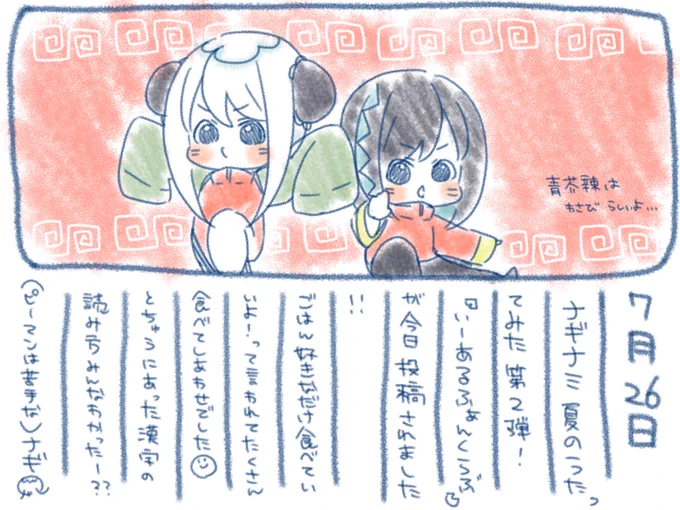 青芥辣は
わさびらしいよ…
7月26日
ナギナミ夏のうたっ
てみた第2弾！
いーあるふぁんくらぶ
が今日投稿されました
!!
ごはん好きなだけ食べてい
いよ！って言われてたくさん
食べてしあわせでした☺
とちゅうにあった漢字の
読み方みんなわかったー??
(ピーマンは苦手な)ナギ